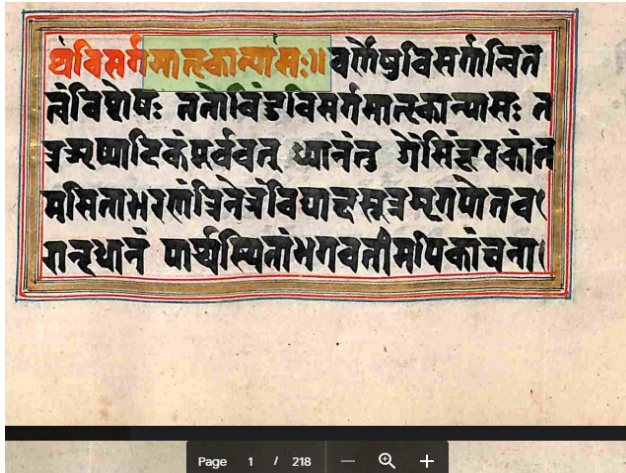 थविसर्गमातृकान्यासः॥ वर्णेषुविसर्गान्वित
त्वंविशेषः ततोविंदुविसर्गमातृकान्यासः त
त्रऋष्यादिकंपूर्ववत् ध्यानंतु सिंदूरकांत
मसिताभरणंत्रिनेत्रंविद्याक्षसूत्रमृगपोतव
रान्दधानं पार्श्वस्थितांभगवतीमपिकांचना
Page 1 / 218